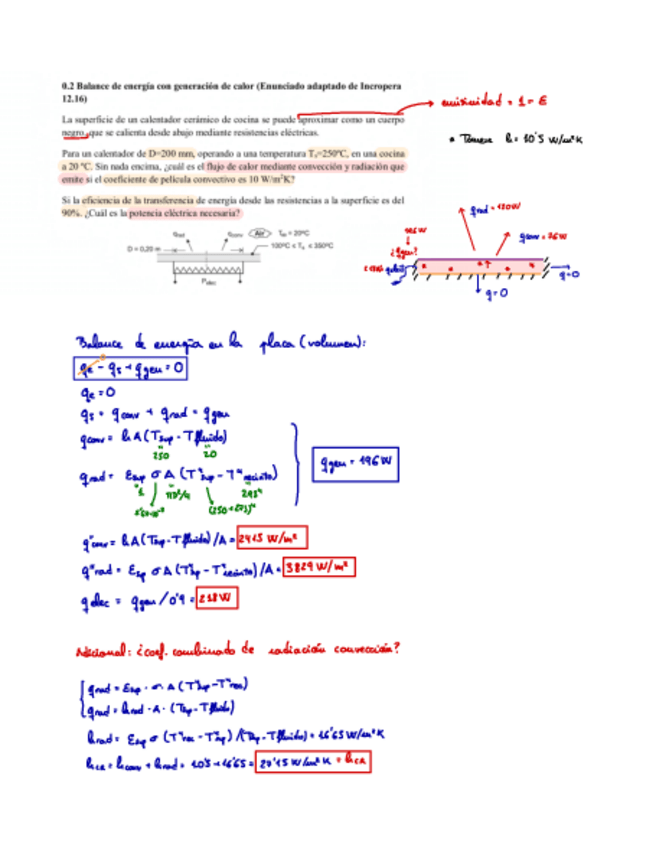 0.2 Balance de energía con generación de calor (Enunciado adaptado de Incropera
12.16)
→ emisividad = 1 = ε
La superficie de un calentador cerámico de cocina se puede aproximar como un cuerpo
negro, que se calienta desde abajo mediante resistencias eléctricas.
• Tómese h = 10'5 W/m²K
Para un calentador de D=200 mm, operando a una temperatura Tₛ=250ºC, en una cocina
a 20 ºC. Sin nada encima, ¿cuál es el flujo de calor mediante convección y radiación que
emite si el coeficiente de película convectivo es 10 W/m²K?
Si la eficiencia de la transferencia de energía desde las resistencias a la superficie es del
90%. ¿Cuál es la potencia eléctrica necesaria?
q rad q conv Air T∞ = 20ºC
D = 0,20 m 100ºC ≤ Tₛ ≤ 350ºC
P elec
q rad = 120W
q conv = 76W
196W
¿q gen?
q=0
q=0
Balance de energía en la placa (volumen):
qe - qs + q gen = 0
qe = 0
qs = q conv + q rad = q gen
q conv = h A (T sup - T fluido)
250 20
q rad = ε sup σ A (T⁴ sup - T⁴ recinto)
1 πD²/4 293⁴
(250+273)⁴
q gen = 196 W
q" conv = h A (T sup - T fluido) / A = 2415 W/m²
q" rad = ε sup σ A (T⁴ sup - T⁴ recinto) / A = 3829 W/m²
q elec = q gen / 0'9 = 218 W
Adicional: ¿coef. combinado de radiación convección?
q rad = ε sup · σ · A (T⁴ sup - T⁴ rec)
q rad = h rad · A · (T sup - T fluido)
h rad = ε sup σ (T⁴ rec - T⁴ sup) / (T sup - T fluido) = 16'65 W/m²K
h CR = h conv + h rad = 10'5 + 16'65 = 27'15 W/m²K = h CR